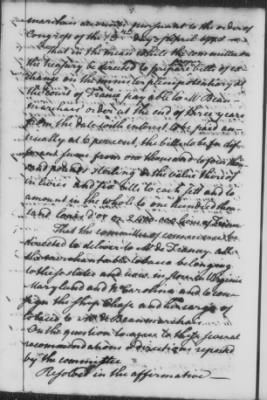 marchais' account pursuant to the order of
Congress of the 13th day of April
That in the mean while the committee on
the treasury be directed to prepare bills of ex-
change on the minister plenipotentiary at
the court of France payable to Mr Beau-
marchais' order at the end of three years
from the date with interest to be paid an-
nually at 6 per cent, the bills to be for dif-
ferent sums from one thousand to
pounds sterling or the value thereof
in livres and five bills to each set and to
amount in the whole to one hundred thou-
sand Louis d'or or 2,400,000 livres
That the committee of commerce be
directed to deliver to Mr de Francy all
the merchantable tobacco belonging
to these states and now in store in Virginia
Maryland and N Carolina and to con-
sign the Ship Chase and her cargo of
tobacco to Mr de Beaumarchais.
On the question to agree to these several
recommendations or directions reported
by the committee
Resolved in the affirmative